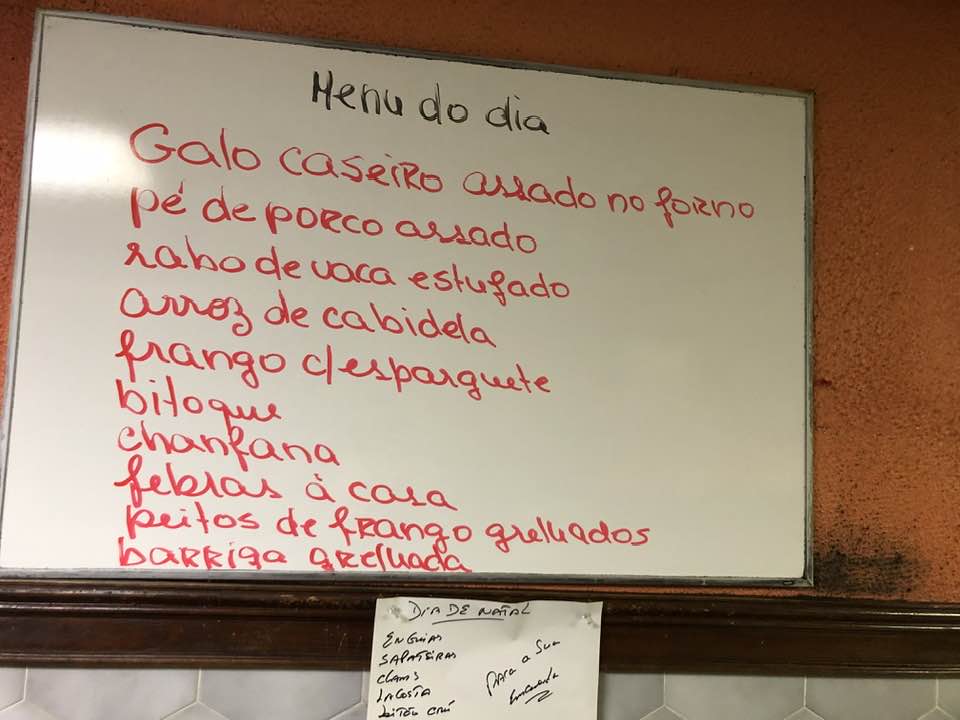 Menu do dia
Galo caseiro assado no forno
pé de porco assado
rabo de vaca estufado
arroz de cabidela
frango c/esparguete
bitoque
chanfana
febras à casa
peitos de frango grelhados
barriga grelhada
DIA DE NATAL
ENGUIAS
SAPATEIRAS
CLAMS
LAGOSTA
LEITÃO
PARA A SUA